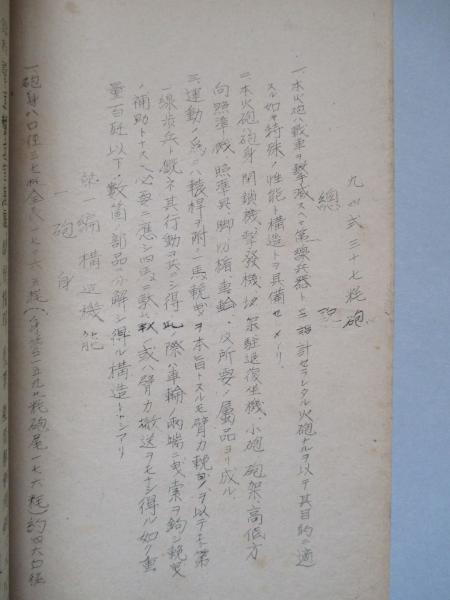 九四式三十七粍砲
總說
一、本火砲ハ戰車ヲ撃滅スヘキ第一線兵器トシテ設計セラレタル火砲ナルヲ以テ其目的ニ適
スル如キ特殊ノ性能ト構造トヲ具備セシメリ
二、本火砲ハ砲身、閉鎖機、撃發機、揺架、駐退復坐機、小砲架、砲架、高低方
向照準機、照準具、脚、防楯、車輪、及所要ノ屬品ヨリ成ル
三、運動ノ爲ニハ轅桿ヲ附シ一馬輓曳ヲ本旨トスルモ臂力輓曳ヲ以テモ第
一線歩兵ト概ネ其行動ヲ共ニシ得此際ハ車輪ノ兩端ニ曳索ヲ鉤シ輓曳
ノ補助トナス必要ニ應シ四馬ニ駄載或ハ臂力搬送ヲモナシ得ル如ク重
量百瓩以下ノ數箇部品ニ分解シ得ル構造トナシアリ
第一編 構造機能
一 砲身
一、砲身ハ口径三七粍全長一七